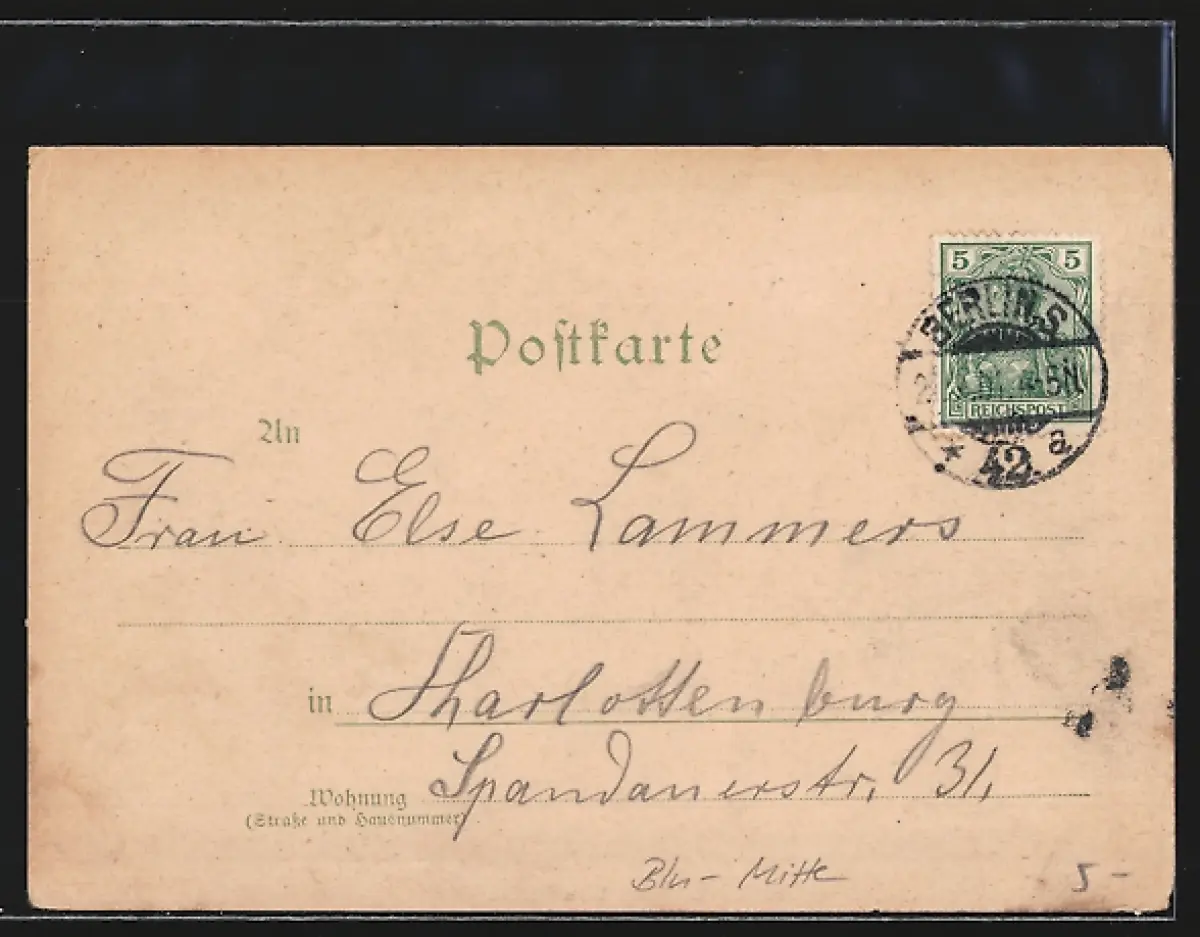 5 5
BERLIN, S.
5N
REICHSPOST
* 42 a
Postkarte
An
Frau Else Lammers
in Charlottenburg
Wohnung Spandauerstr. 31,
(Straße und Hausnummer)
Bln - Mitte 5 -